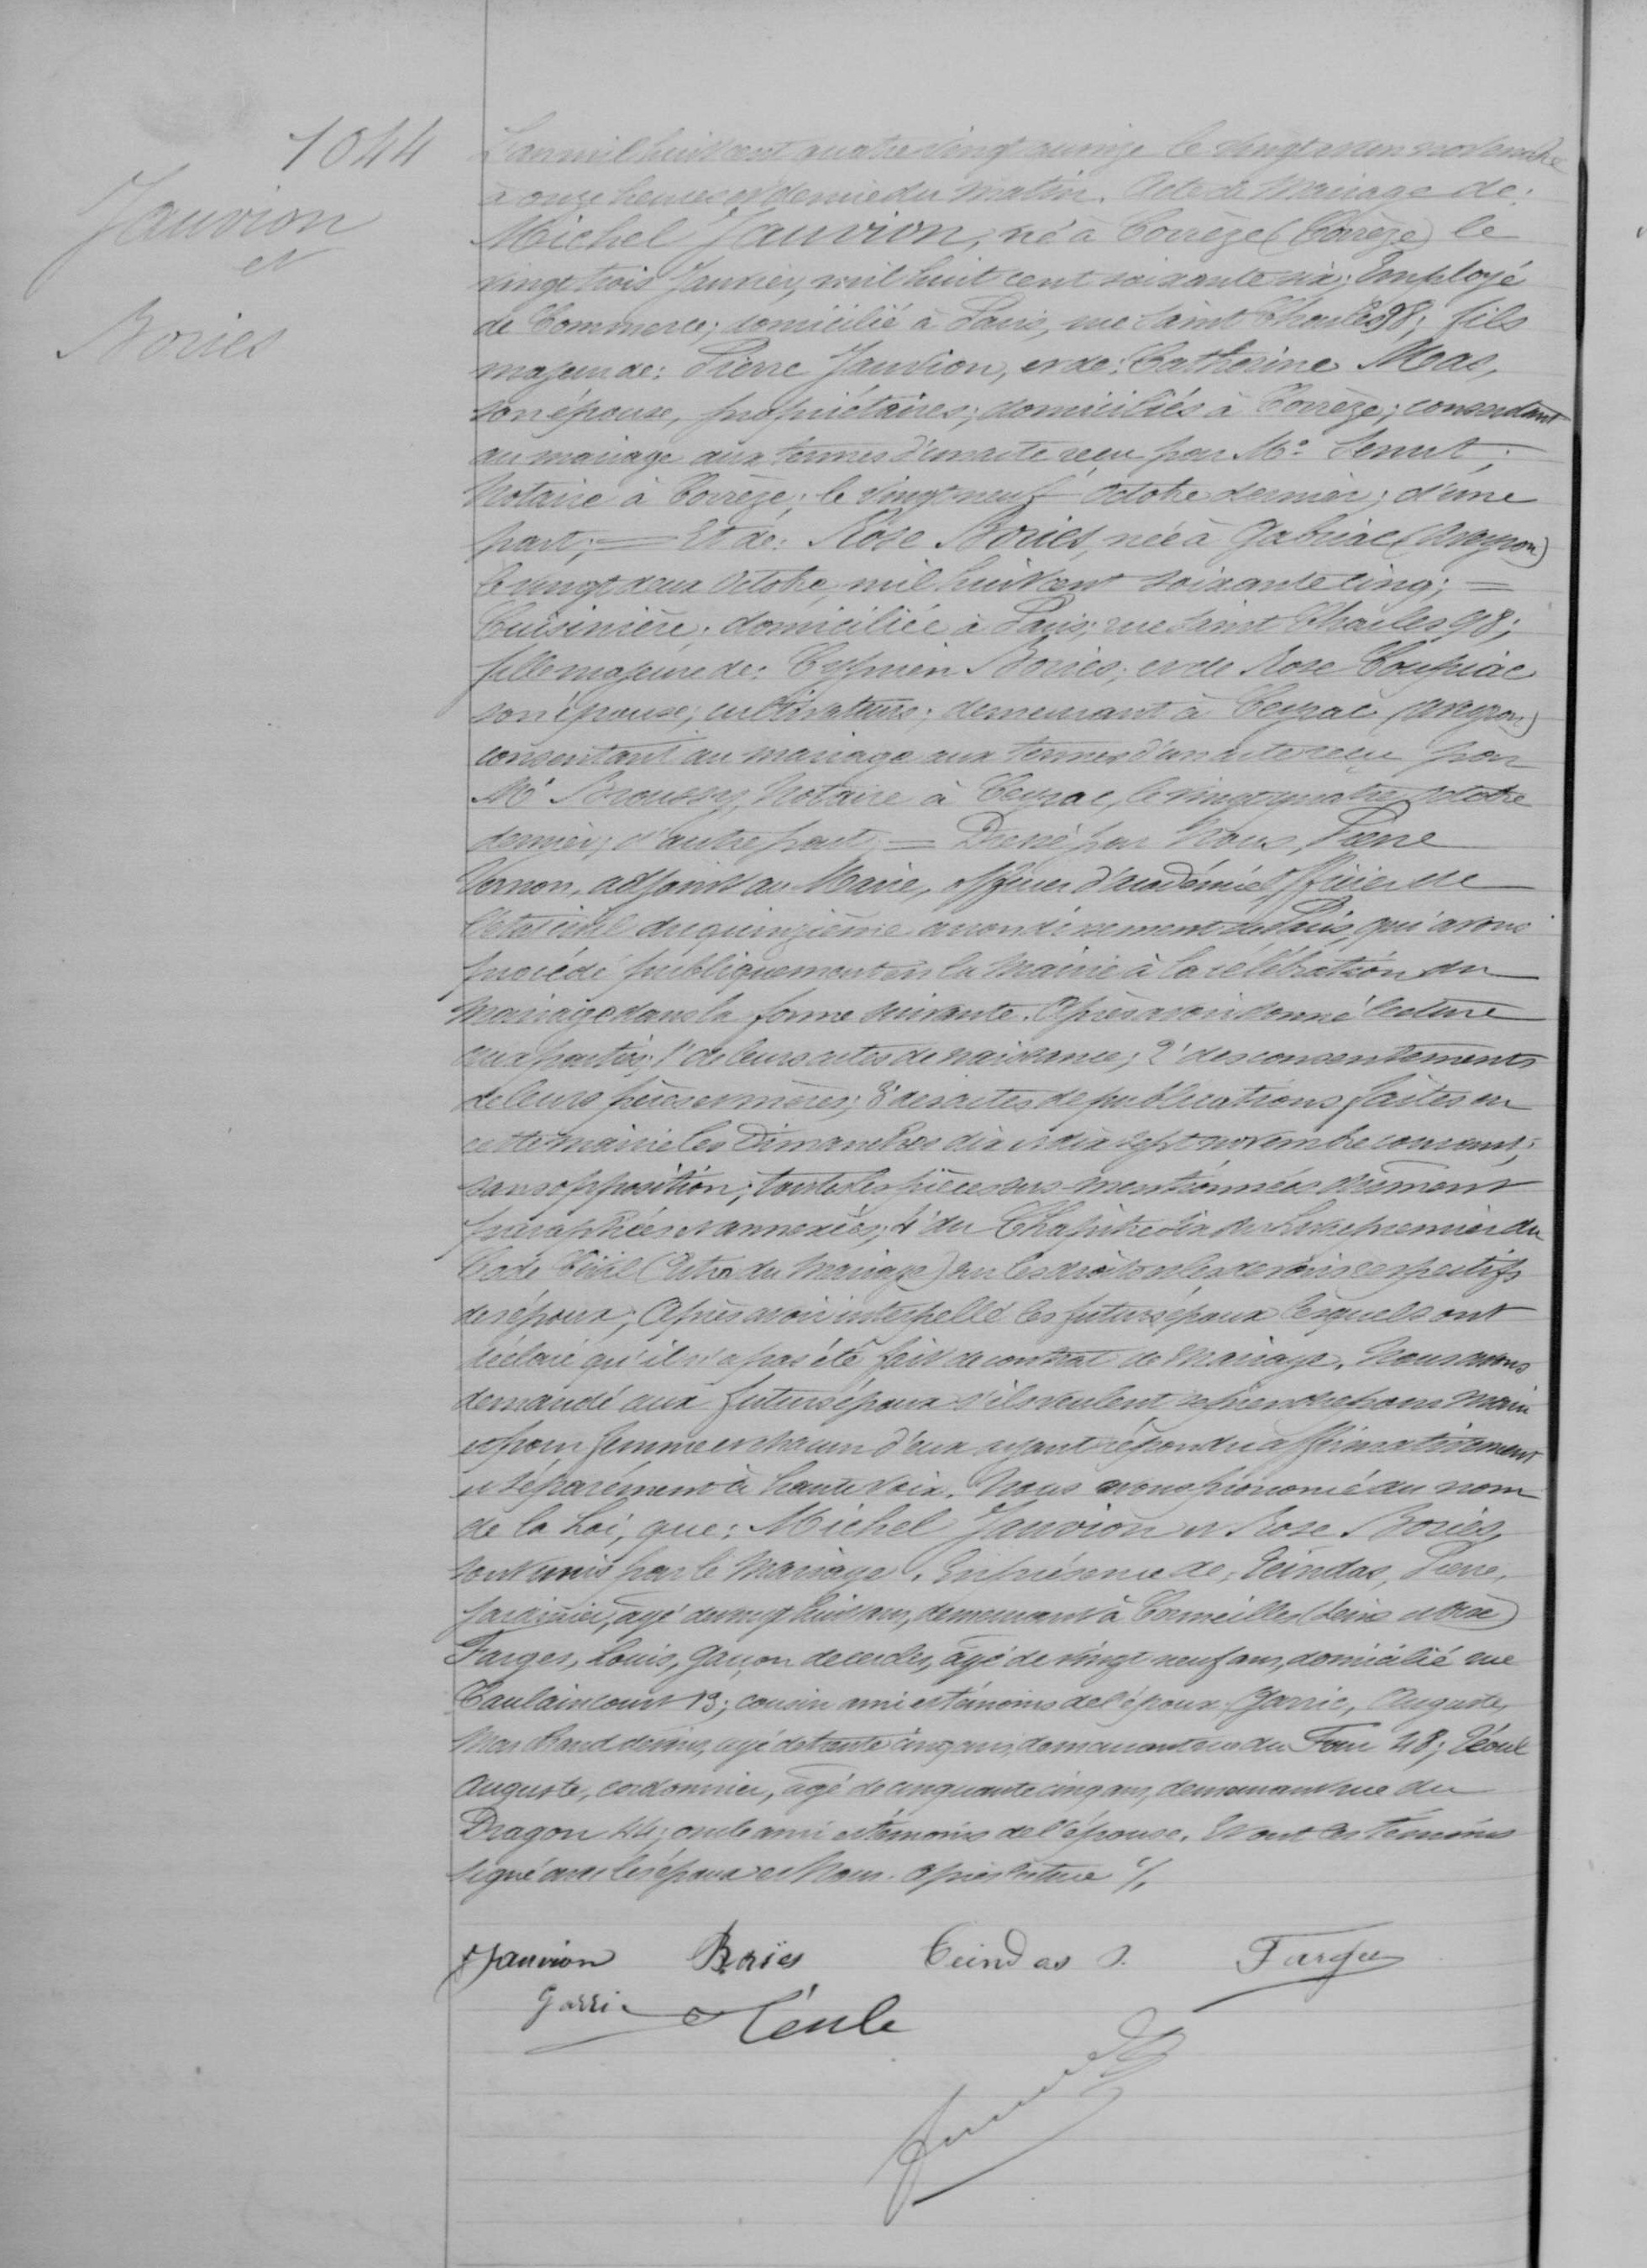 1044
Jauvion
et
Bories
L'an mil huit cent quatre vingt quinze le vingt novembre
à onze heures et demie du matin. Acte de Mariage de:
Michel Jauvion, né à Corrèze (Corrèze) le
vingt trois Janvier, mil huit cent soixante six; Employé
de Commerce; domicilié à Paris, rue Saint Charles 98; fils
majeur de: Pierre Jauvion, et de: Catherine Meas,
son épouse, propriétaires; domiciliés à Corrèze; consentant
au mariage aux termes d'un acte reçu par Me
Notaire à Corrèze; le vingt neuf Octobre dernier; d'une
part; = Et de: Rose Bories, née à Gabriac (Aveyron)
le vingt deux Octobre, mil huit cent soixante cinq; =
Cuisinière; domiciliée à Paris; rue Saint Charles 98;
fille majeure de: Cyprien Bories; et de Rose Coupiac
son épouse; cultivateurs; demeurant à Ceyrac (Aveyron)
consentant au mariage aux termes d'un acte reçu par
Me Broussy, Notaire à Ceyrac, le vingt quatre Octobre
dernier; d'autre part; = Dressé par Nous, Pierre
Vernon, adjoint au Maire, officier d'académie Officier de
l'état civil du quinzième arrondissement de Paris, qui avons
procédé publiquement en la Mairie à la célébration du
Mariage dans la forme suivante. Après avoir donné lecture
aux parties; 1° de leurs actes de naissance; 2° des consentements
de leurs pères et mères; 3° des actes de publications faites en
cette mairie les Dimanches dix et dix sept novembre courant;
sans opposition; toutes les pièces sus-mentionnées dûment
paraphées et annexées; 4° du Chapitre six du Livre premier du
Code Civil (Titre du Mariage) sur les droits et les devoirs respectifs
des époux; Après avoir interpellé les futurs époux lesquels ont
déclaré qu'il n'a pas été fait de contrat de Mariage. Nous avons
demandé aux futurs époux s'ils veulent se prendre pour Mari
et pour femme et chacun d'eux ayant répondu affirmativement
et séparément à haute voix. Nous avons prononcé au nom
de la Loi, que: Michel Jauvion et Rose Bories,
sont unis par le Mariage. En présence de; Ceindas, Pierre,
jardinier, âgé de vingt huit ans, demeurant à Cormeilles (Seine et Oise)
Farges, Louis, Garçon de cercles, âgé de vingt neuf ans, domicilié rue
Caulaincourt 13; cousin ami et témoins de l'époux; Garric, Auguste,
Marchand de vins, âgé de trente cinq ans, demeurant rue du Four 48; Téoul
Auguste, cordonnier, âgé de cinquante cinq ans, demeurant rue du
Dragon 44; oncle ami et témoins de l'épouse. Et ont les témoins
signé avec les époux et Nous. Après lecture ./.
Jauvion Bories Ceindas P. Farges
Garric Téule